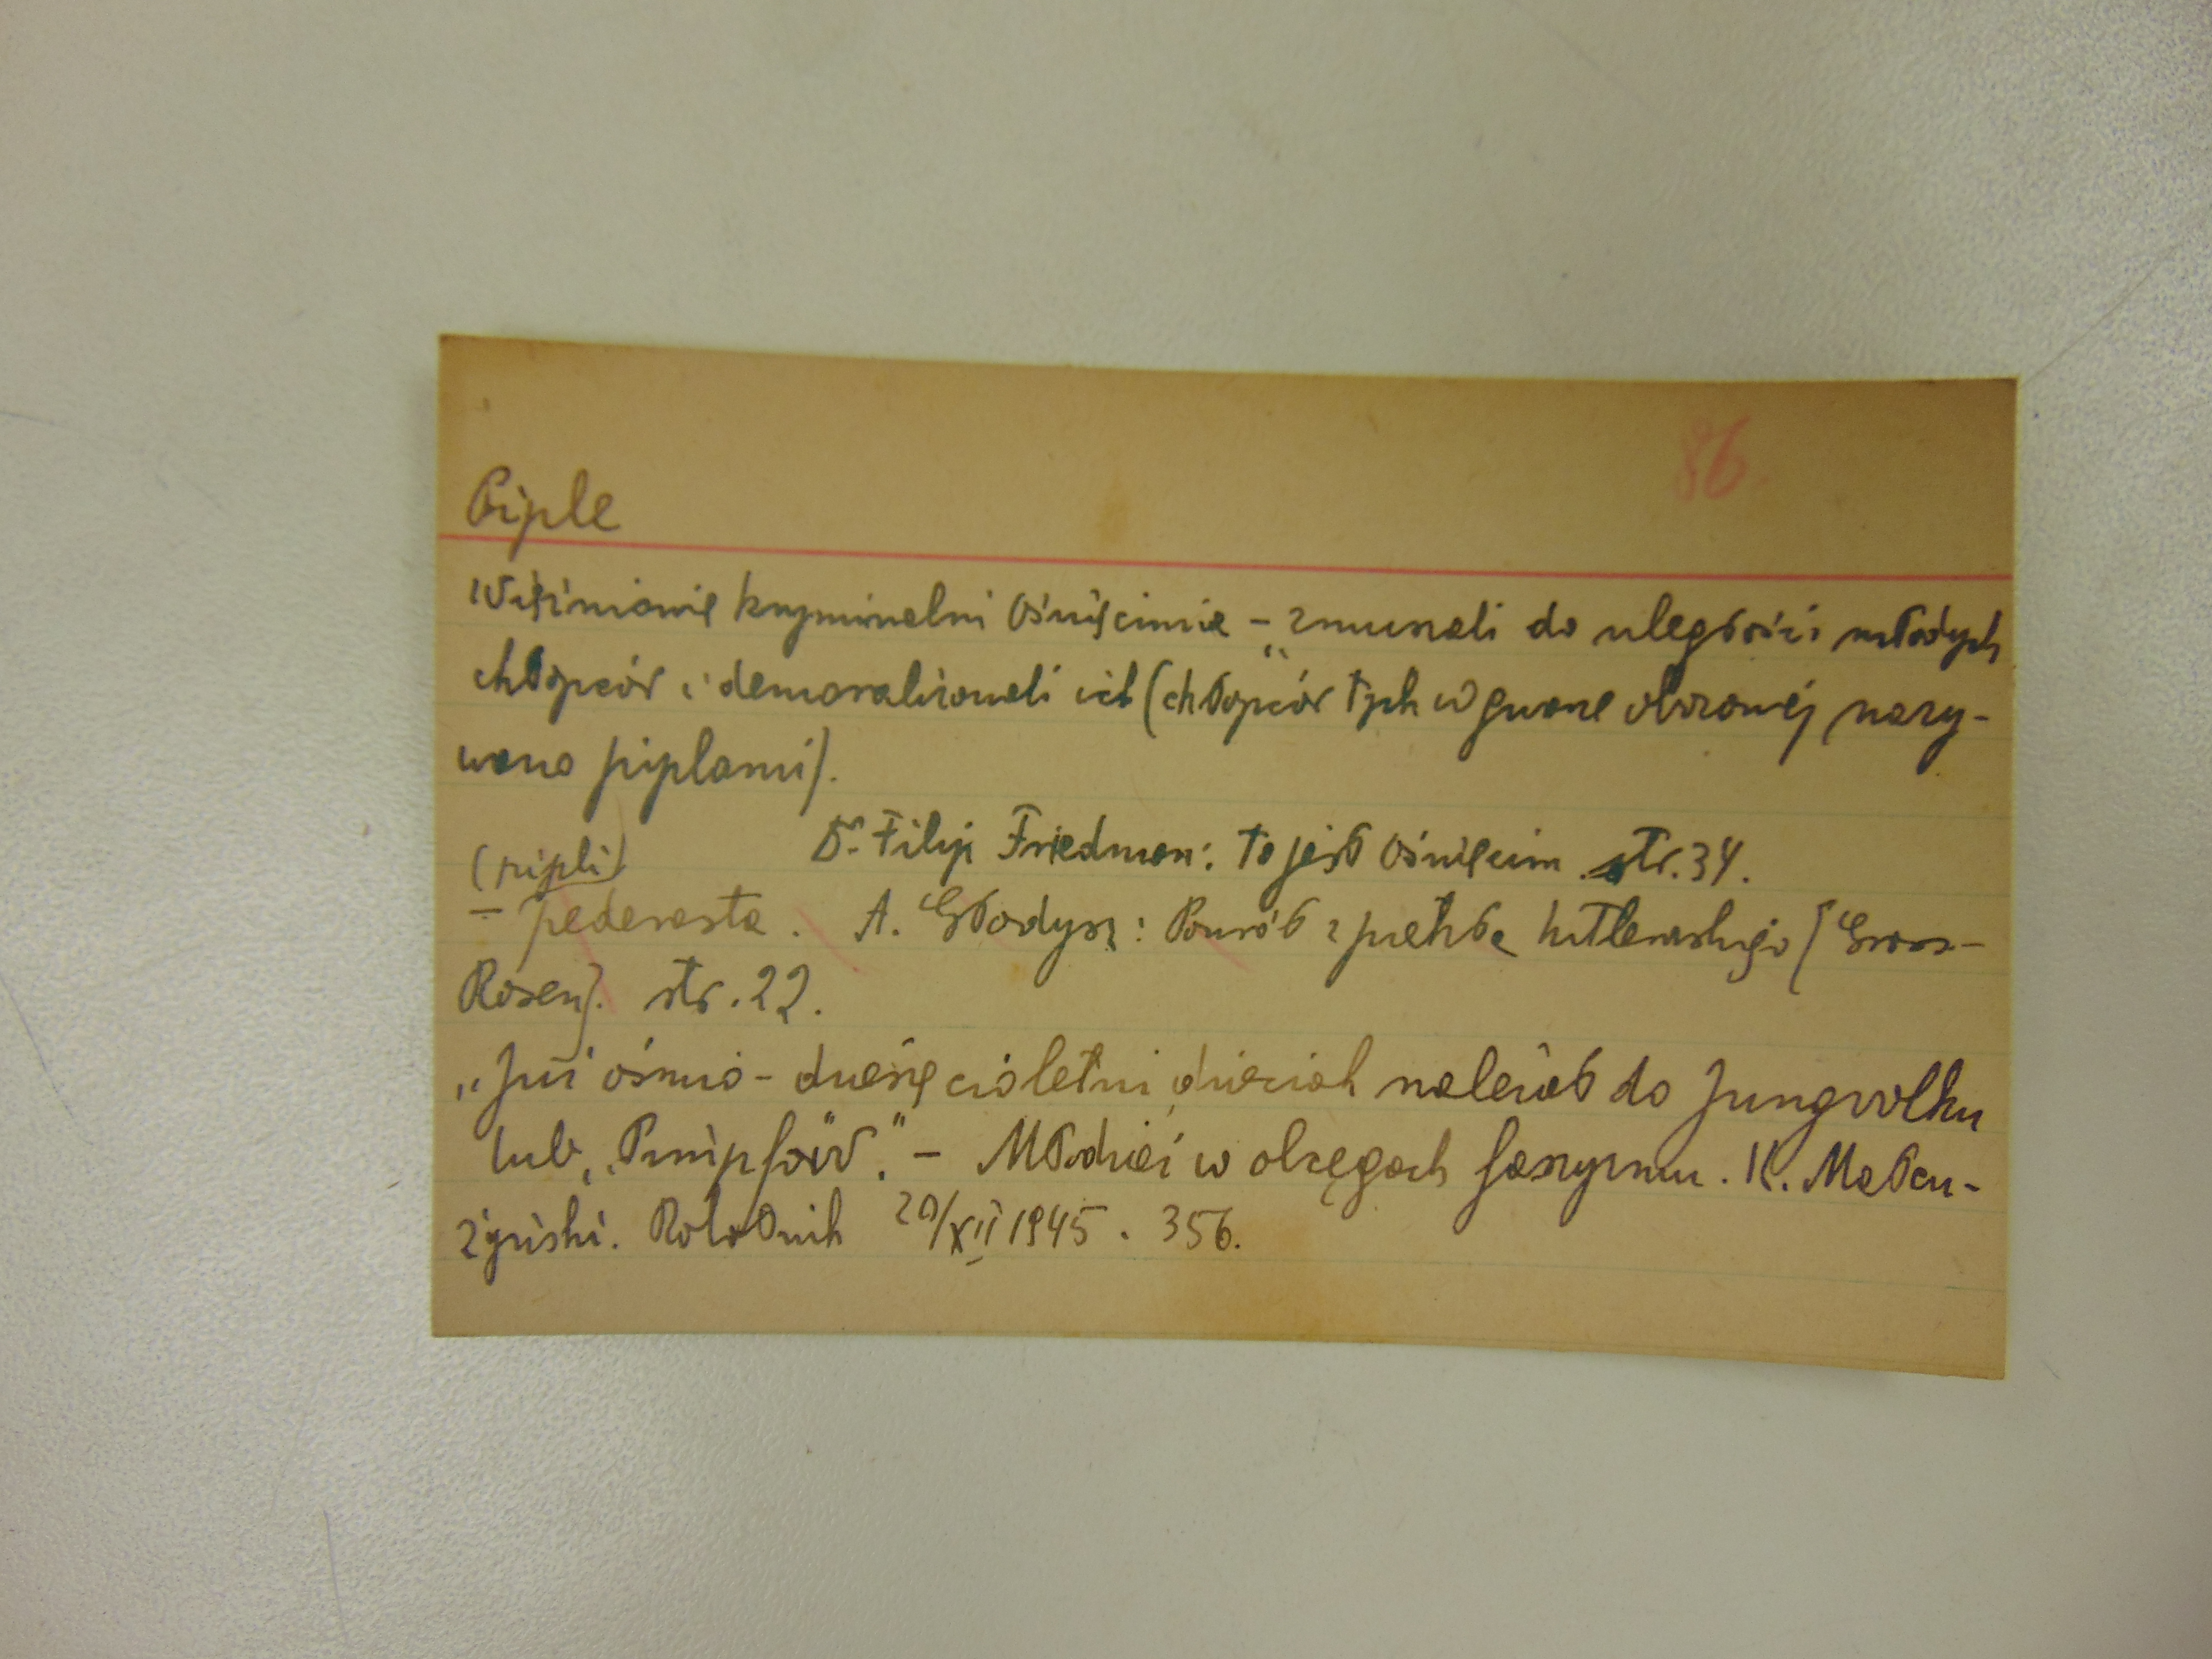 86.
Piple
Więźniowie kryminalni Oświęcimia – zmuszali do uległości młodych
chłopców i demoralizowali ich (chłopców tych w gwarze obozowej nazy-
wano piplami).
Dr. Filip Friedman: To jest Oświęcim. str. 34.
(pipli)
– pederasta. A. Gładysz: Powrót z piekła hitlerowskiego (Gross-
Rosen). str. 22.
„Już ośmio-dziesięcioletni dzieciak należał do Jungvolku
lub „Pimpfów”. – Młodzież w obcęgach faszyzmu. K. Małcu-
żyński. Robotnik 20/XII 1945. 356.